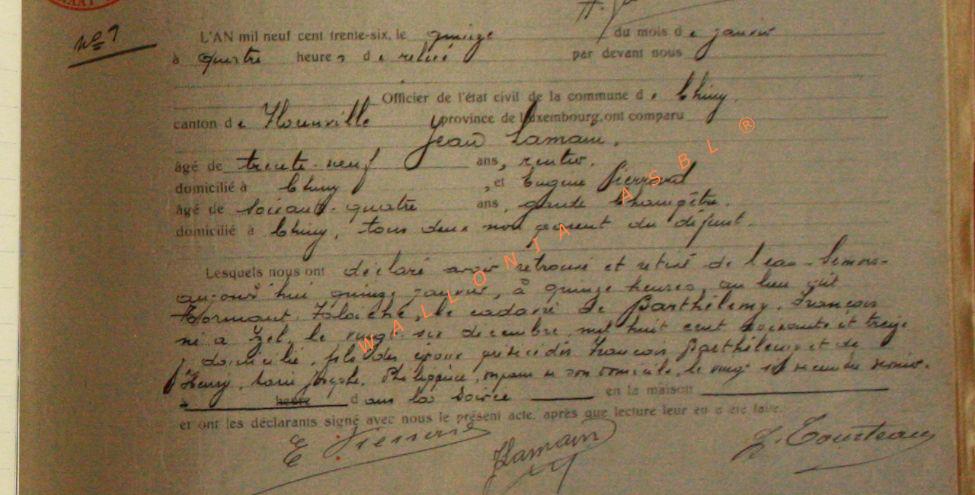 N° 1
L'AN mil neuf cent trente-six, le quinze du mois de janvier
à quatre heures de relevé par devant nous
Officier de l'état civil de la commune de Chiny,
canton de province de Luxembourg, ont comparu
Jean Lamain,
âgé de trente-neuf ans, rentier,
domicilié à Chiny, et Eugène
âgé de soixante-quatre ans, garde champêtre,
domicilié à Chiny, tous deux non parent du défunt.
Lesquels nous ont déclaré avoir retrouvé et retiré de l'eau
aujourd'hui quinze janvier, à quinze heures, au lieu dit
le cadavre de Barthélemy, François
né à Izel, le vingt-six décembre mil huit cent soixante et treize
y domicilié, fils des époux François Barthélemy et de
Henry, Marie Josèphe, de son domicile, le vingt décembre dernier.
à heure dans la soirée en la maison
et ont les déclarants signé avec nous le présent acte, après que lecture leur en a été faite.
Lamain
WALLONIA ASBL ®